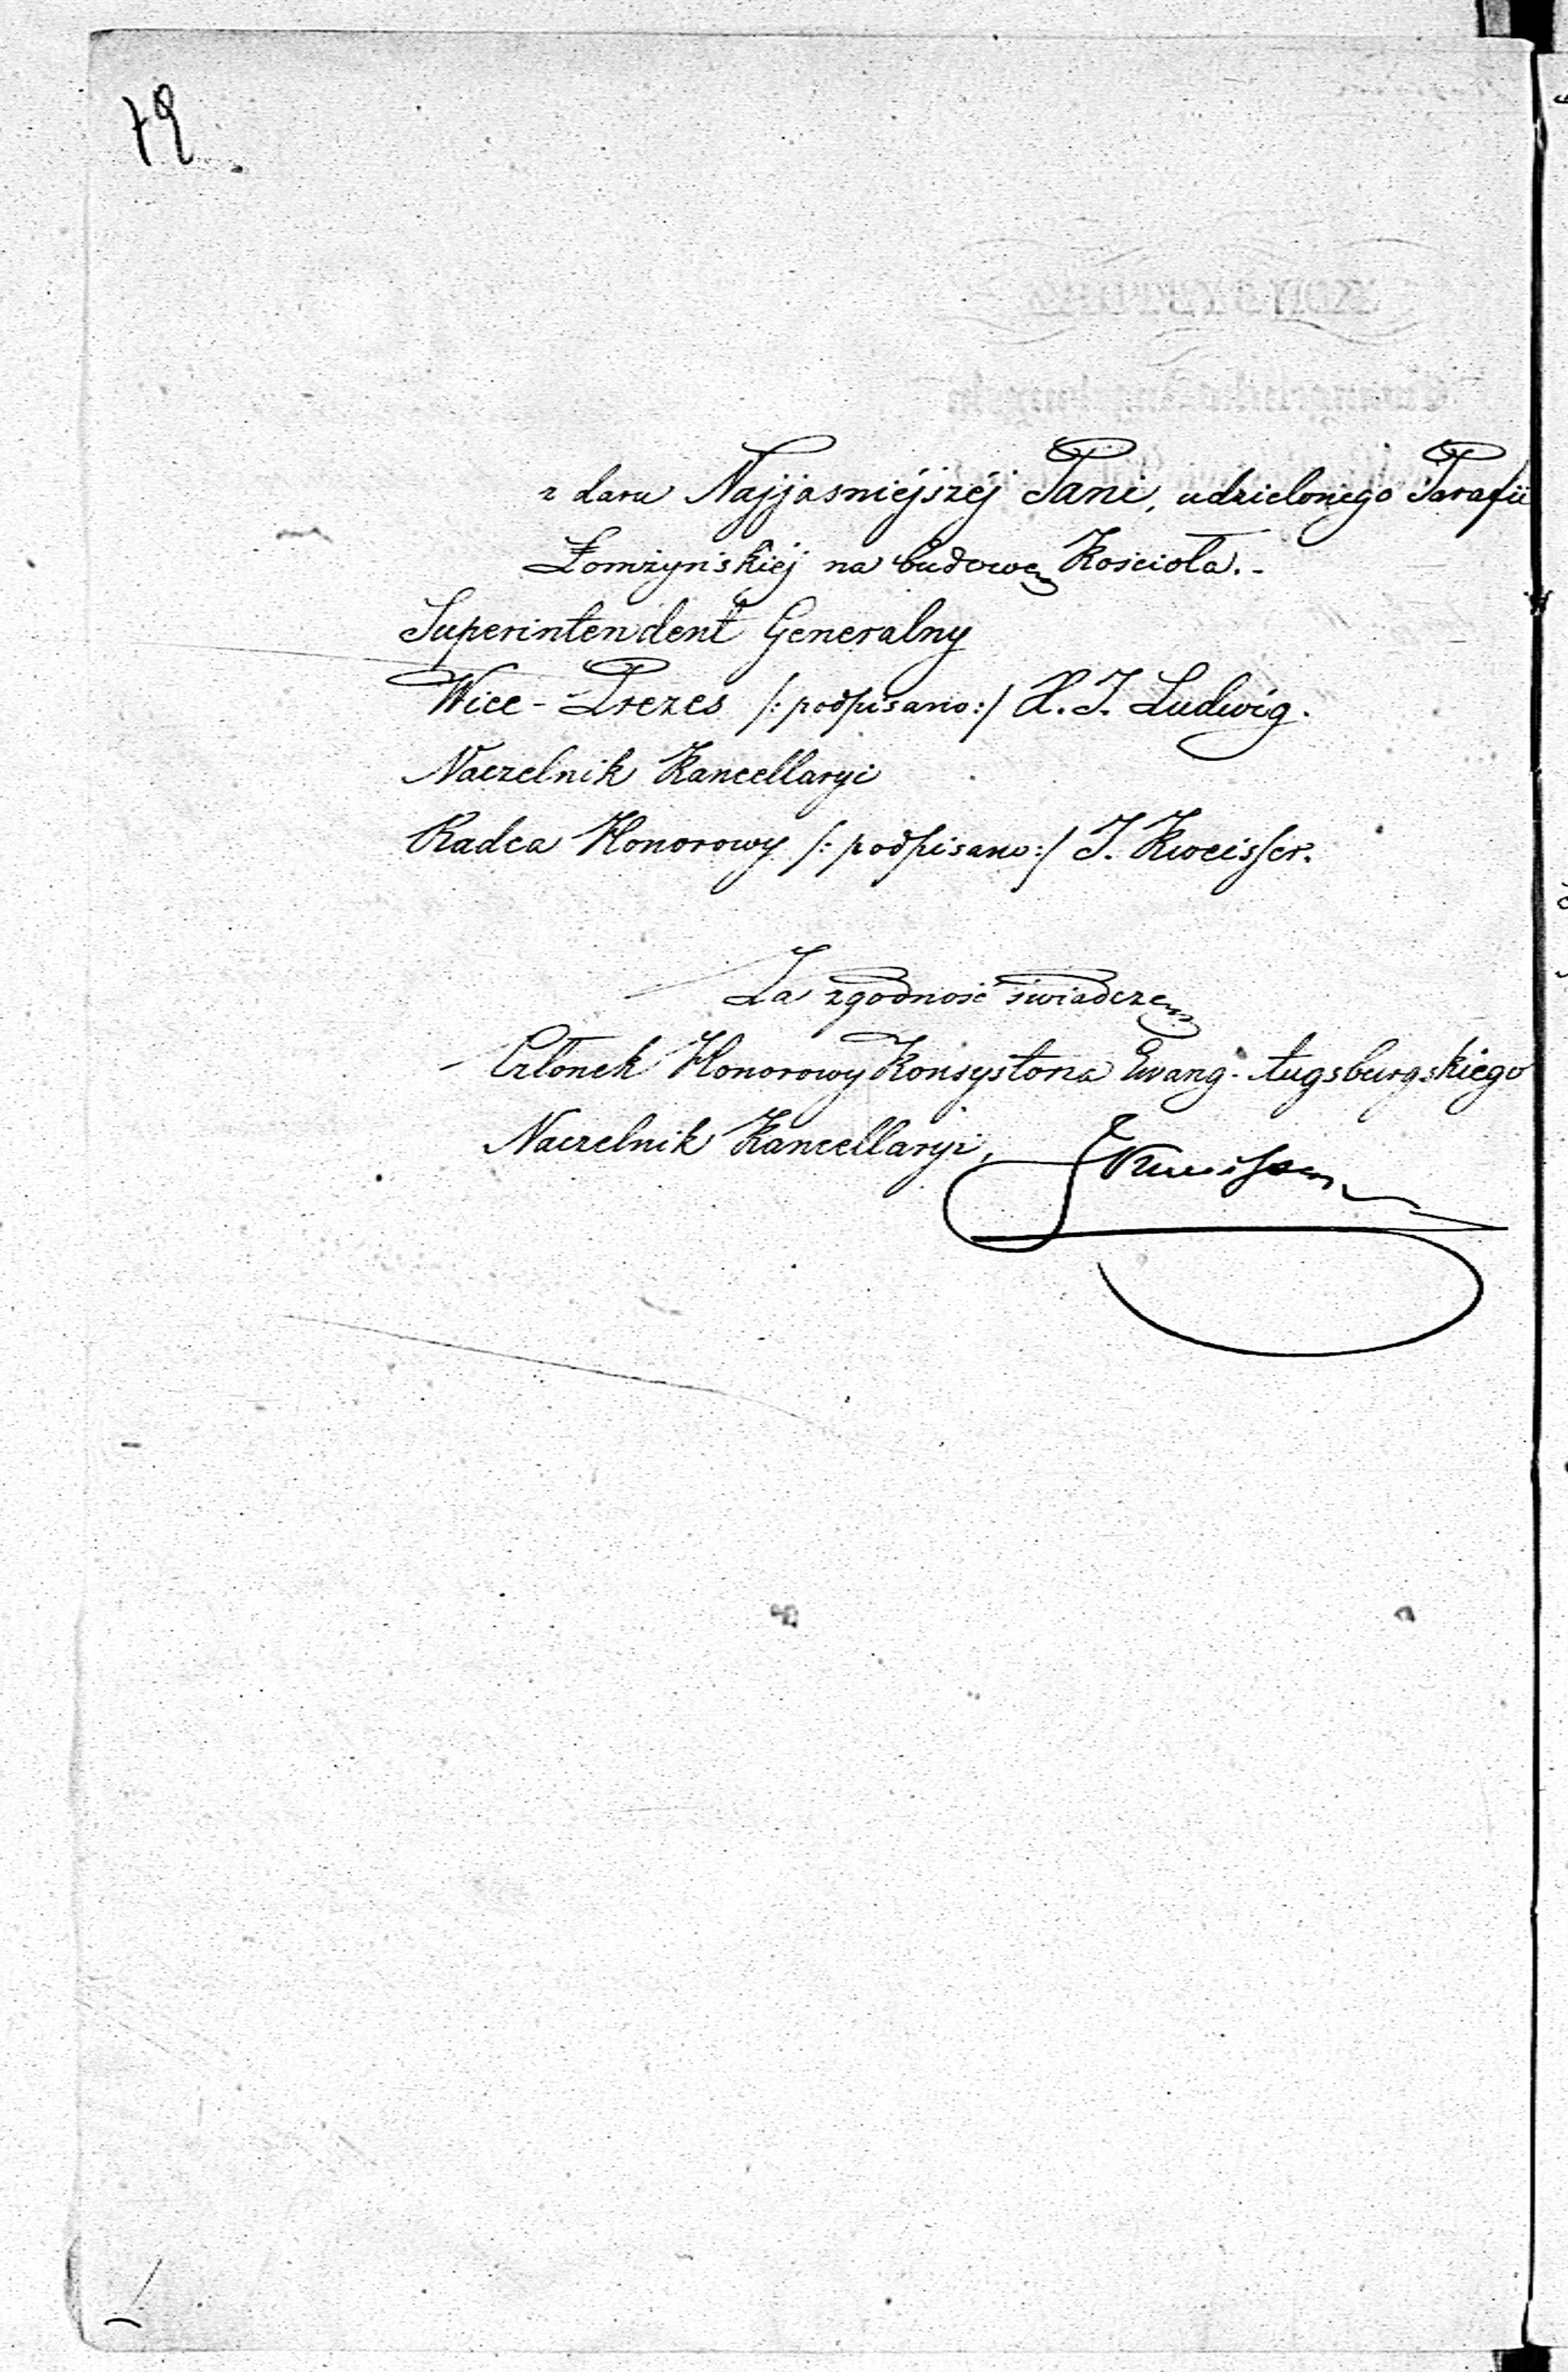 72
z daru Najjasniéjszéj Pani, udzielonego Parafii
Łomżyńskiéj na budowę Kościoła.-
Superintendent Generalny
Wice-Prezes /: podpisano:/ X. J. Ludwig.
Naczelnik Kancellaryi
Radca Honorowy /: podpisano:/ J. Kweisser.
Za zgodność świadczę
Członek Honorowy Konsystorza Ewang. Augsburgskiego
Naczelnik Kancellaryi,